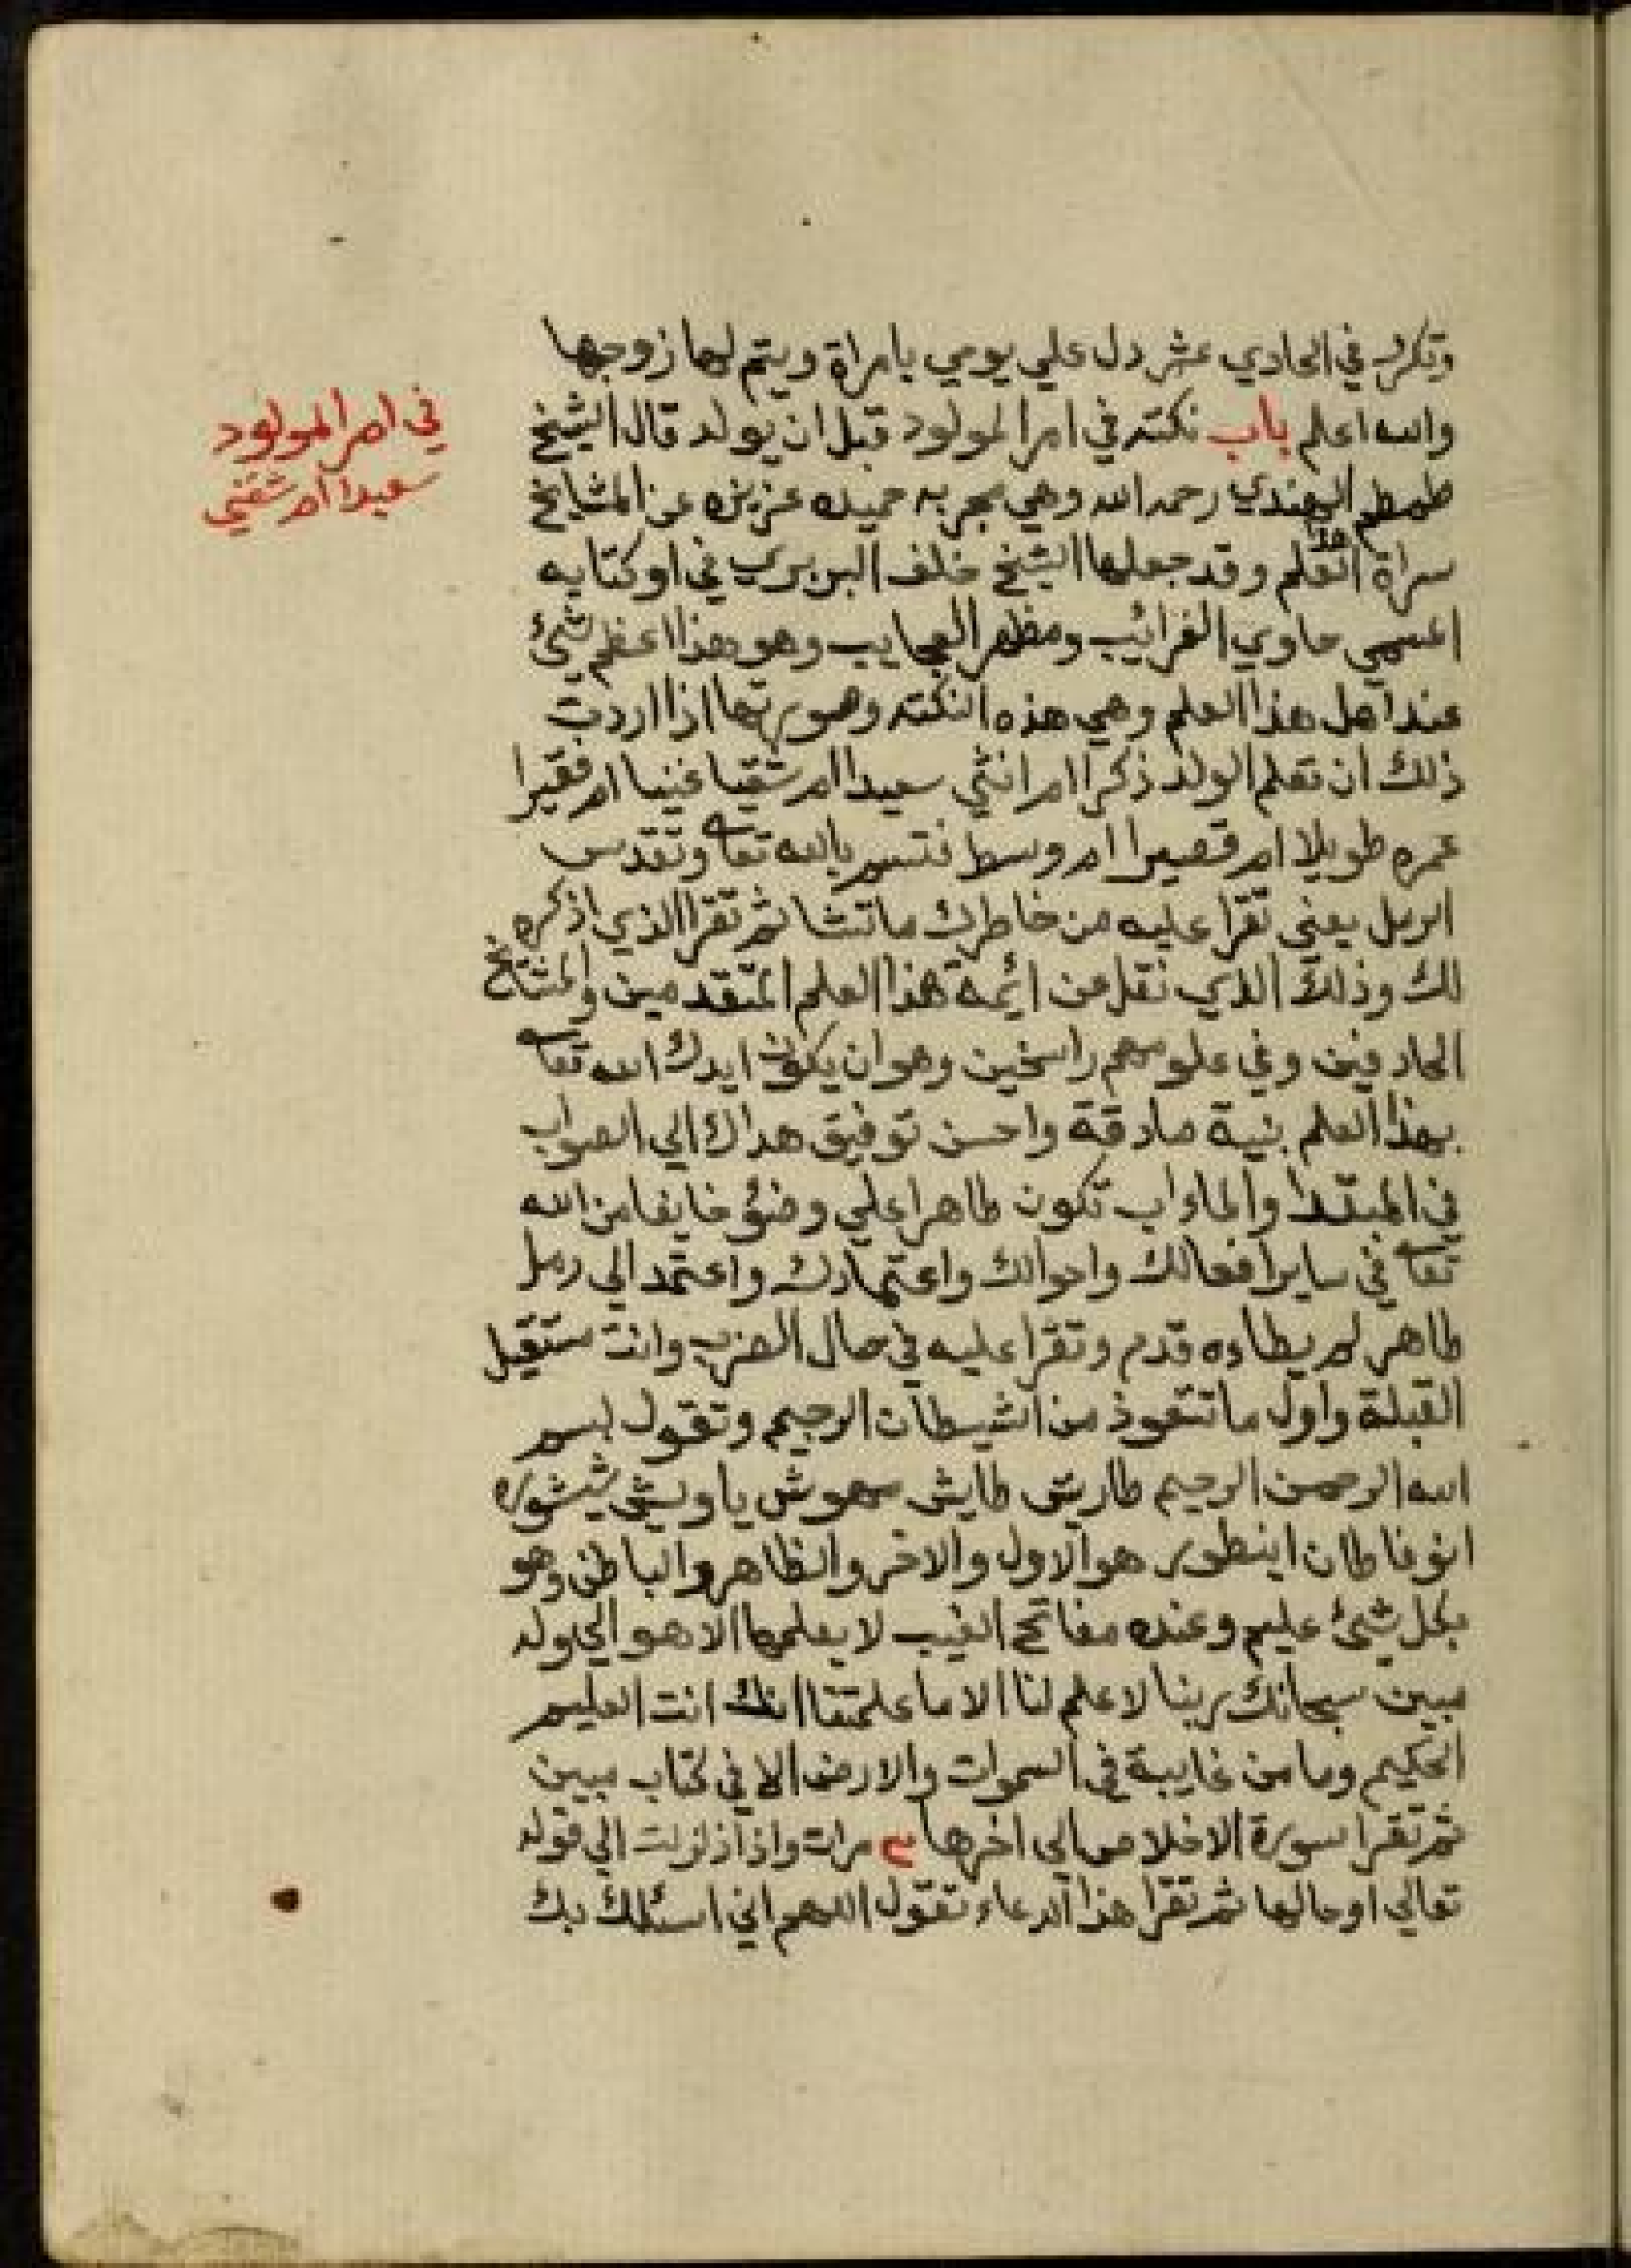 وتكرر في الحادي عشر دل علي يومي يامراة ويتم لها زوجها
والله اعلم باب نكته في امر المولود قبل ان يولد قال الشيخ
طمطم الهندي رحمه الله وهي مجربه حميده عزيزه عن المشايخ
سراة العلم وقد جعلها الشيخ خلف البربري في اوكتابه
المسمي حاوي الغرائيب ومظهر العجايب وهو هذا اعظم شئ
عند اهل هذا العلم وهي هذه النكته وصورتها اذا اردت
ذلك ان تعلم الولد ذكرا ام انثي سعيدا ام شقيا غنيا ام فقيرا
عمره طويلا ام قصيرا ام وسط فتسم بالله تعا وتقدس
الرمل يعني تقرا عليه من خاطرك ماتشا ثم تقرا الذي اذكره
لك وذلك الذي نقل عن ائمة هذا العلم المتقدمين والمشايخ
الحادقين وفي علومهم راسخين وهو ان يكون ايدك الله تعا
بهذا العلم بنية صادقة واحسن توفيق هداك الي الصواب
في المبتدا والماواب تكون طاهرا علي وضؤ خايفا من الله
تعا في ساير افعالك واحوالك واعتمادك واعتمد الي رمل
طاهر لم يطاوه قدم وتقرا عليه في حال الضرب وانت مستقبل
القبلة واول ما تتعوذ من الشيطان الرجيم وتقول بسم
الله الرحمن الرحيم طاريش طايش مهوش ياويشي شيشوره
انوفاطان اينطور هو الاول والاخر والظاهر والباطن وهو
بكل شئ عليم وعنده مفاتح الغيب لا يعلمها الا هو الي قوله
مبين سبحانك ربنا لاعلم لنا الا ما علمتنا انك انت العليم
الحكيم وما من غايبة في السموات والارض الا في كتاب مبين
ثم تقرا سورة الاخلاص الي اخرها مرات واذا زلزلت الي قوله
تعالي اوحالها ثم تقرا هذا الدعاء تقول اللهم اني اسئلك بك
في امر المولود
سعيدا ام شقي